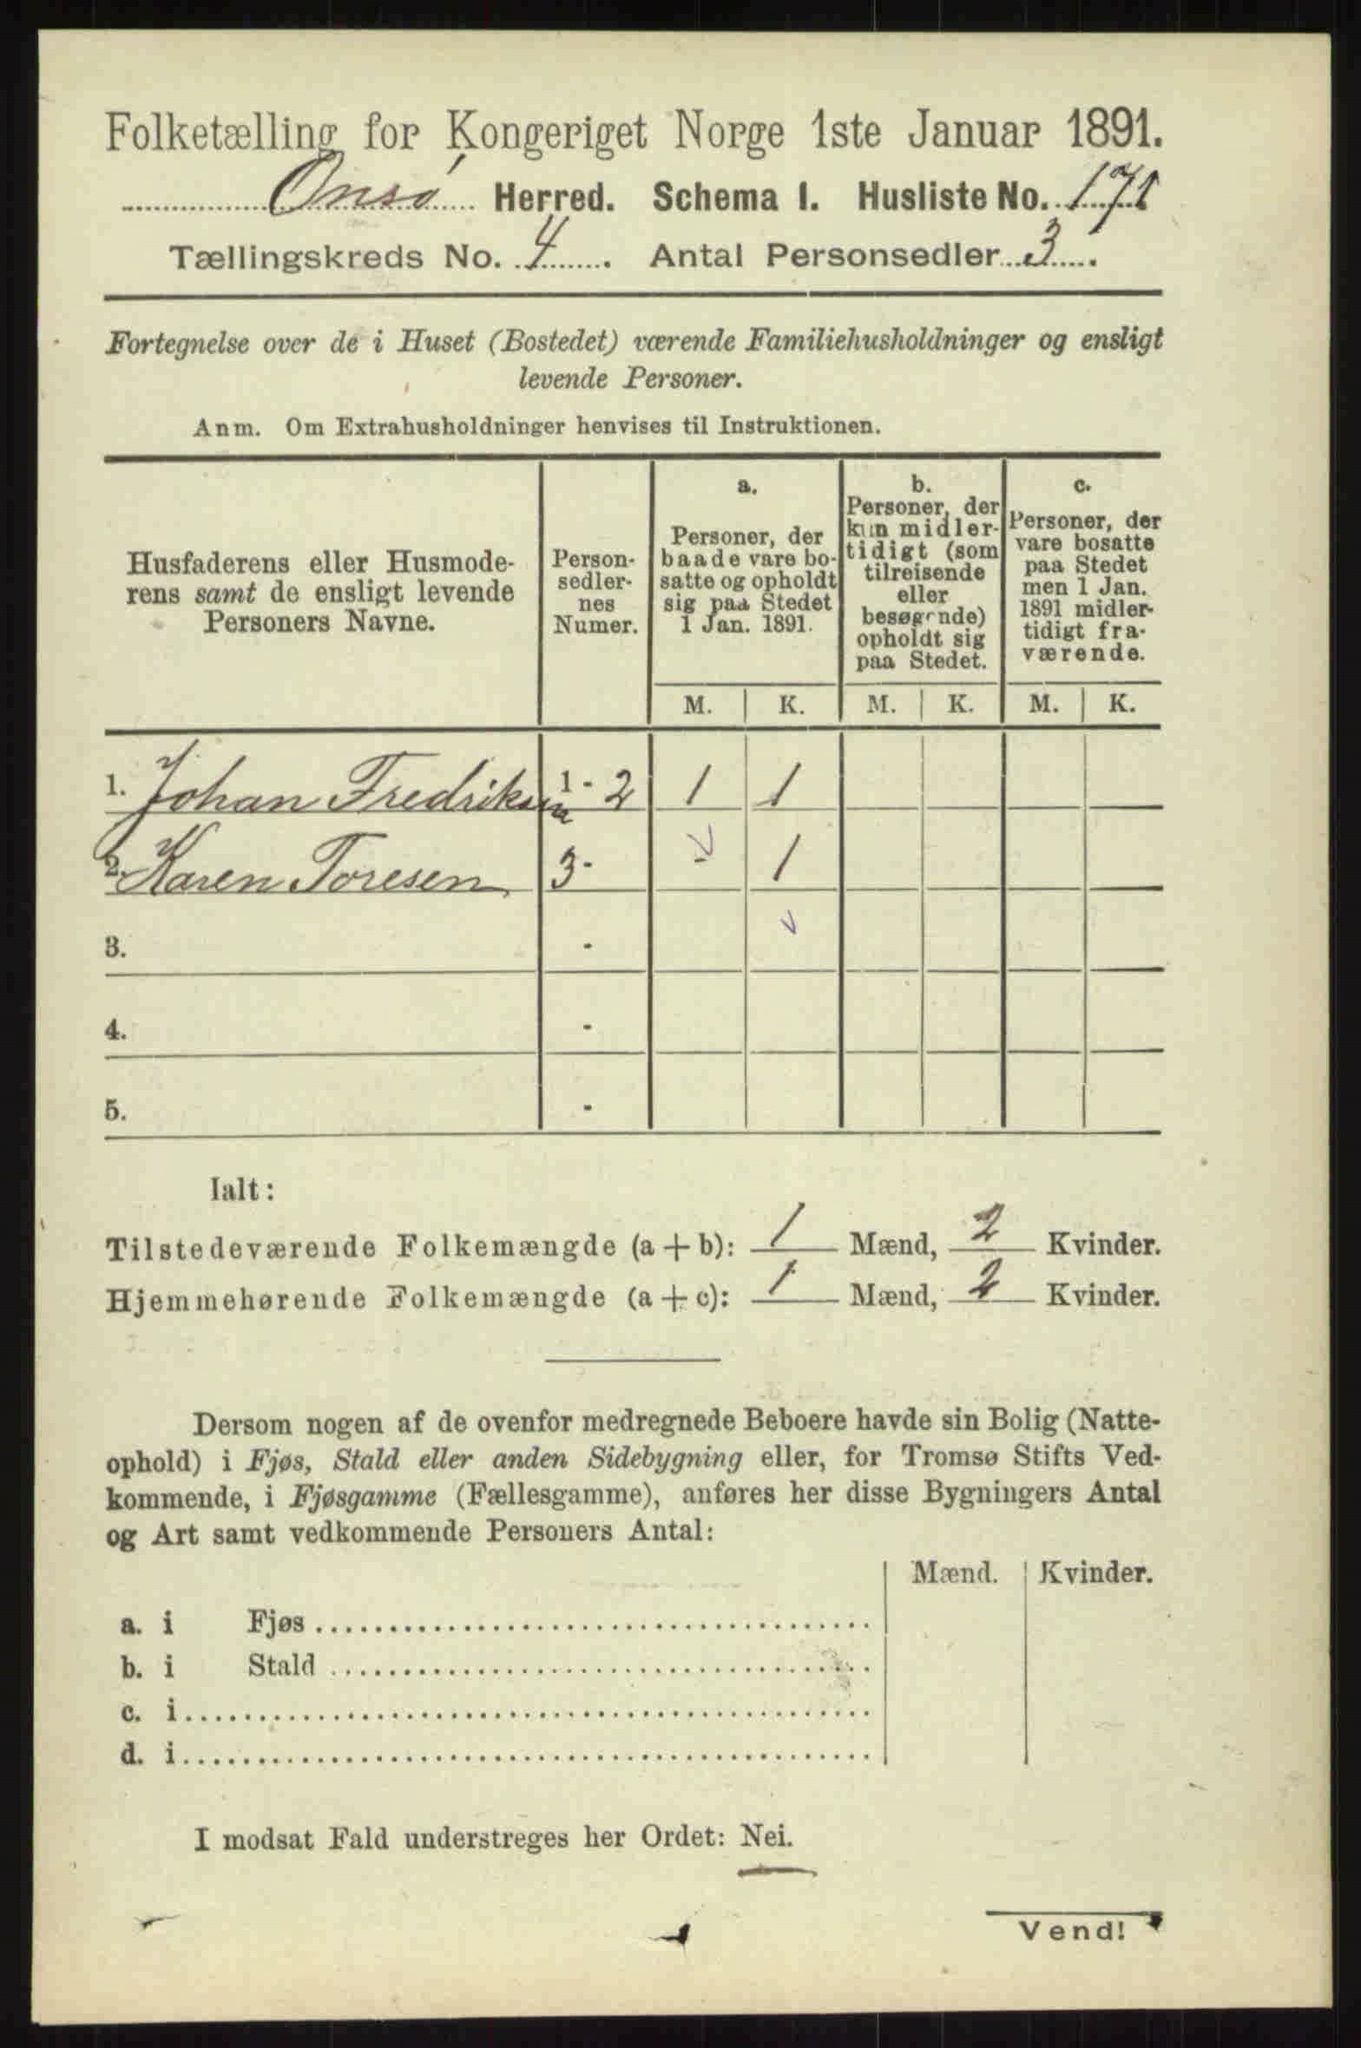 Folketælling for Kongeriget Norge 1ste Januar 1891.
Onsø Herred. Schema I. Husliste No. 171
Tællingskreds No. 4. Antal Personsedler 3.
Fortegnelse over de i Huset (Bostedet) værende Familiehusholdninger og ensligt
levende Personer.
Anm. Om Extrahusholdninger henvises til Instruktionen.
Husfaderens eller Husmode-
rens samt de ensligt levende
Personers Navne.
Person-
sedler-
nes
Numer.
a.
Personer, der
baade vare bo-
satte og opholdt
sig paa Stedet
1 Jan. 1891.
b.
Personer, der
kun midler-
tidigt (som
tilreisende
eller
besøgende)
opholdt sig
paa Stedet.
c.
Personer, der
vare bosatte
paa Stedet
men 1 Jan.
1891 midler-
tidigt fra-
værende.
M. K. M. K. M. K.
1. Johan Fredriksen 1 - 2 1 1
2. Karen Toresen 3 - 1
3. -
4. -
5. -
Ialt:
Tilstedeværende Folkemængde (a + b): 1 Mænd, 2 Kvinder.
Hjemmehørende Folkemængde (a + c): 1 Mænd, 2 Kvinder.
Dersom nogen af de ovenfor medregnede Beboere havde sin Bolig (Natte-
ophold) i Fjøs, Stald eller anden Sidebygning eller, for Tromsø Stifts Ved-
kommende, i Fjøsgamme (Fællesgamme), anføres her disse Bygningers Antal
og Art samt vedkommende Personers Antal:
Mænd. Kvinder.
a. i Fjøs
b. i Stald
c. i
d. i
I modsat Fald understreges her Ordet: Nei.
Vend!